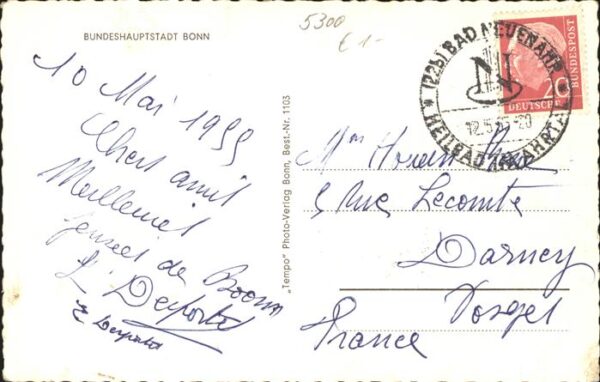 BUNDESHAUPTSTADT BONN
5300
€ 1-
10 Mai 1955
Chers amis
Meilleures
pensées de Bonn
E Deporte
E Deporte
„Tempo" Photo-Verlag Bonn, Best.-Nr. 1103
(22b) BAD NEUENAHR
HEILBAD
12.5.55-20
20
DEUTSCHE
BUNDESPOST
Rue Lecomte
Darney
Vosges
France